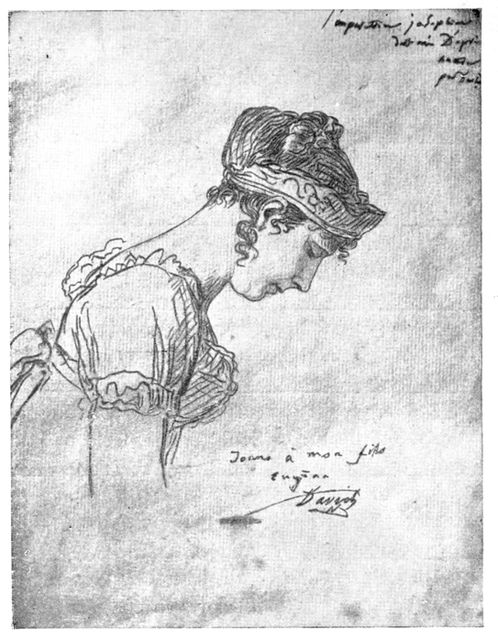 l'imperatrice josephine
dessiné D'après
nature
par David
Donné à mon fils
Eugène
David